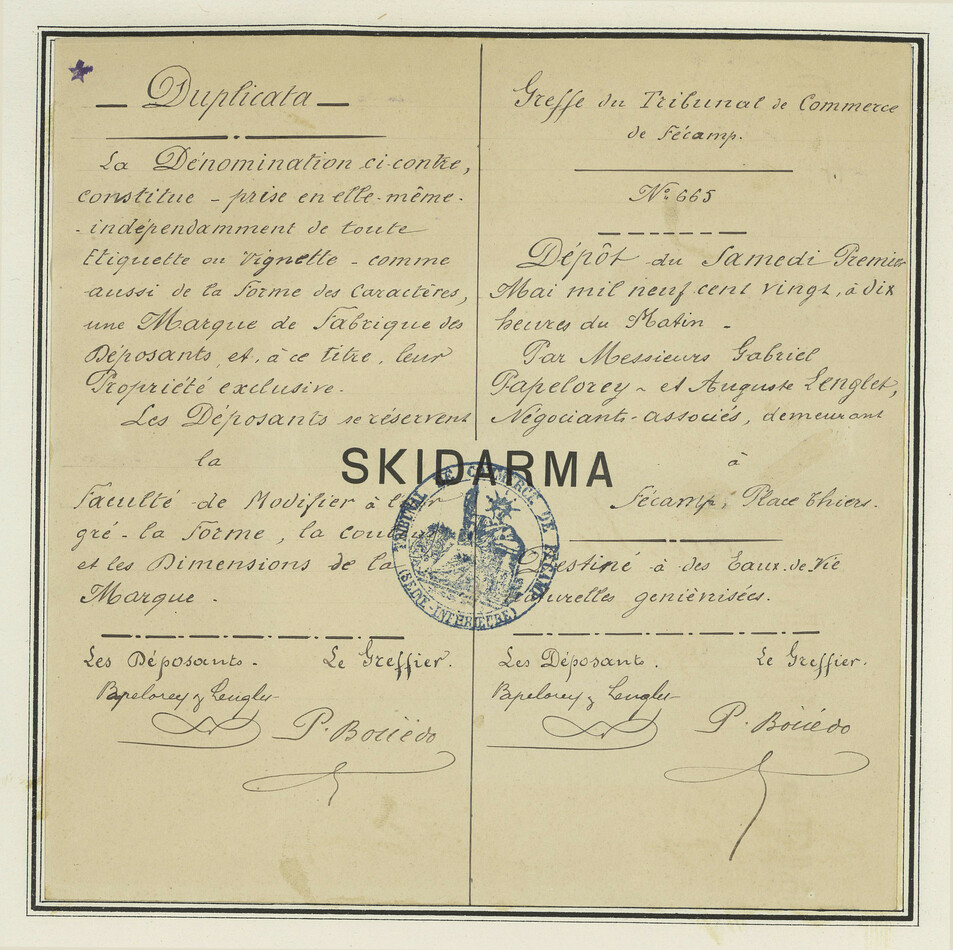 Duplicata
La Dénomination ci-contre,
constitue - prise en elle-même -
- indépendamment de toute
Etiquette ou Vignette - comme
aussi de la Forme des Caractères,
une Marque de Fabrique des
Déposants, et, à ce titre, leur
Propriété exclusive.
Les Déposants se réservent
la
Faculté - de Modifier à
gré - la Forme, la
et les Dimensions de la
Marque.
Les Déposants. Le Greffier.
Papelorey & Lenglet
P. Boüédo
SKIDARMA
TRIBUNAL DE COMMERCE DE FÉCAMP
(SEINE-INFÉRIEURE)
Greffe du Tribunal de Commerce
de Fécamp.
N° 665
Dépôt du Samedi Premier
Mai mil neuf cent vingt, à dix
heures du Matin -
Par Messieurs Gabriel
Papelorey - et Auguste Lenglet,
Négociants-associés, demeurant
à
Fécamp, Place Thiers.
Destiné à des Eaux-de-Vie
naturelles genièvrisées.
Les Déposants. Le Greffier.
Papelorey & Lenglet
P. Boüédo